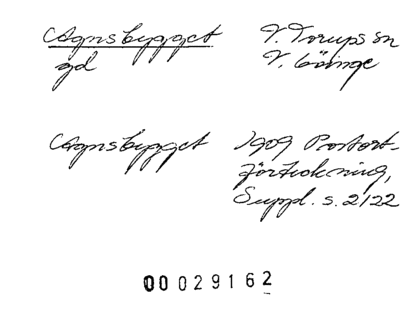 Agnsbygget V. Torups sn
gd V. Göinge
Agnsbygget 1909 Postort-
förteckning,
Suppl. s. 2122
00029162